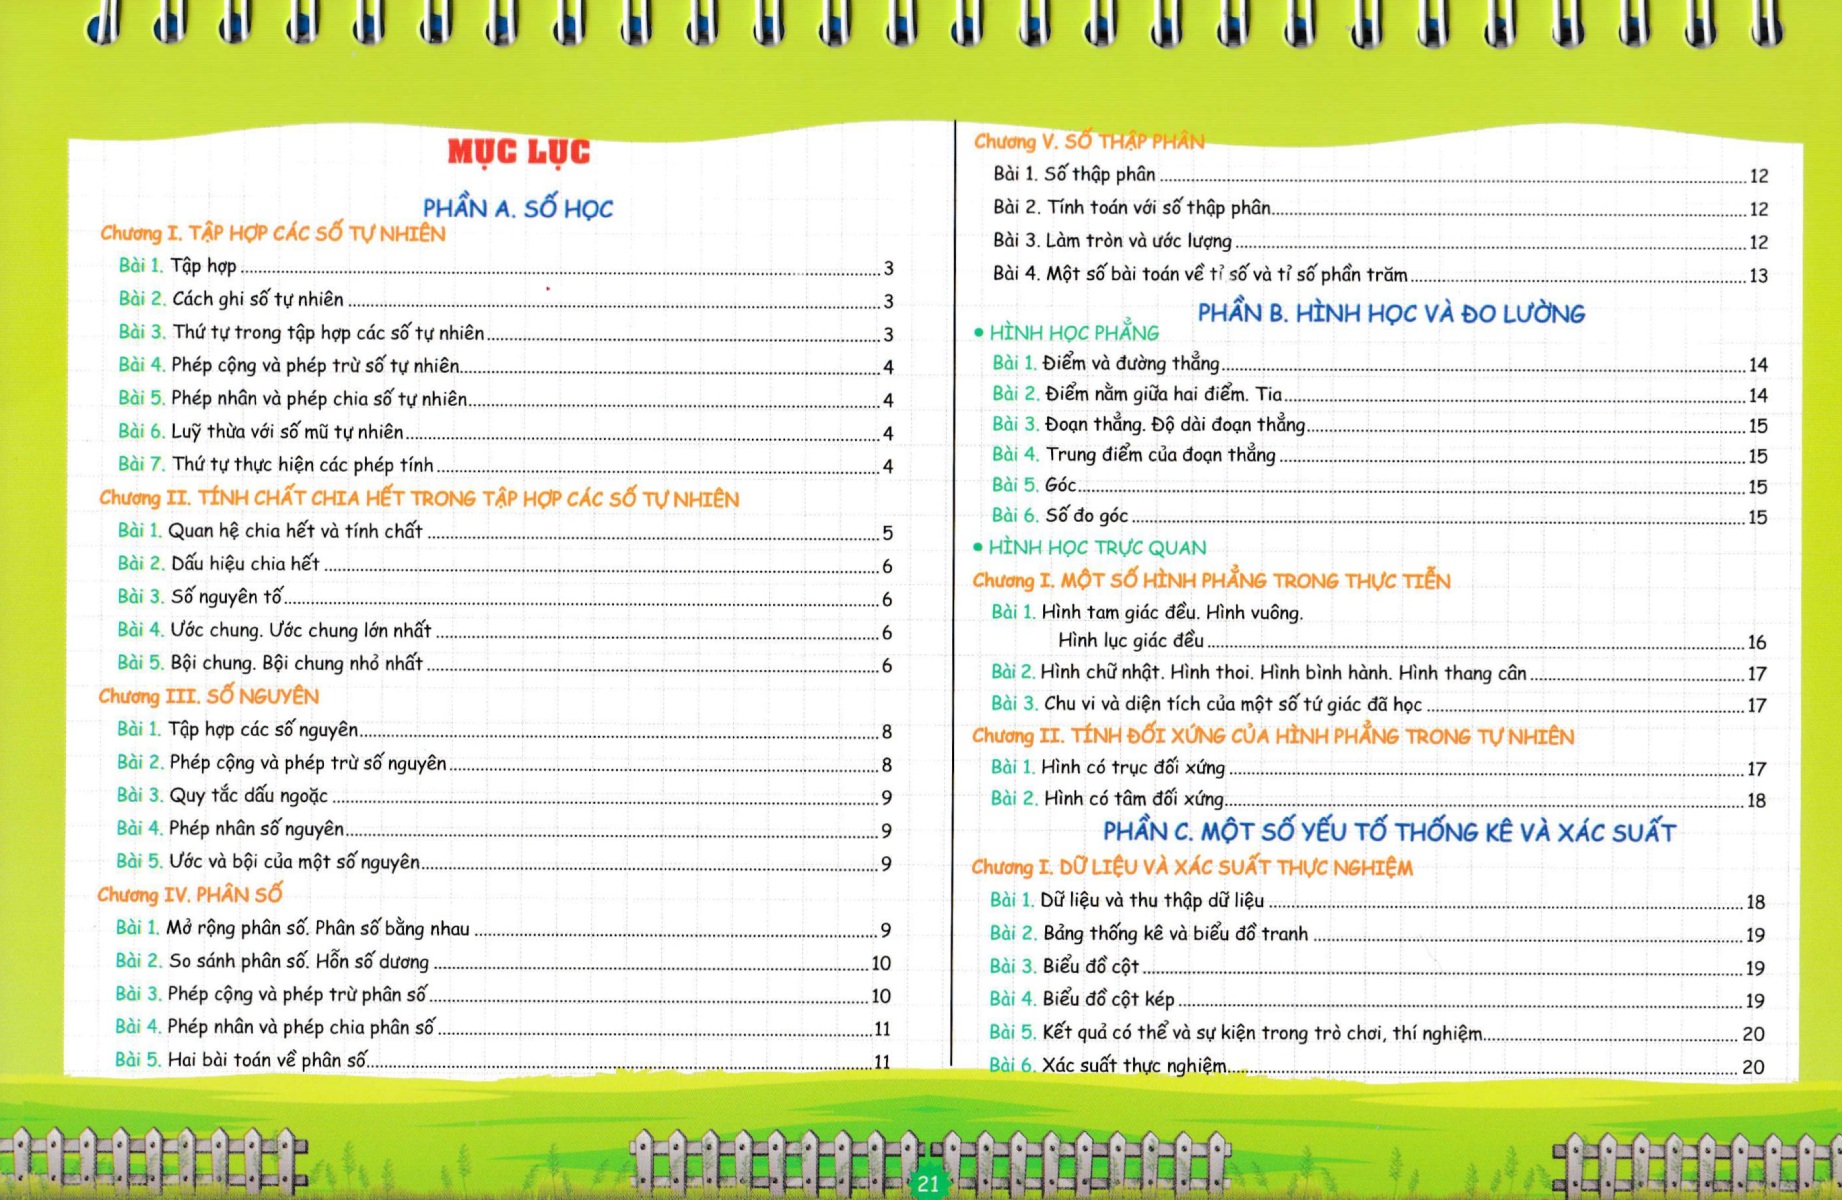 MỤC LỤC
PHẦN A. SỐ HỌC
Chương I. TẬP HỢP CÁC SỐ TỰ NHIÊN
Bài 1. Tập hợp 3
Bài 2. Cách ghi số tự nhiên 3
Bài 3. Thứ tự trong tập hợp các số tự nhiên 3
Bài 4. Phép cộng và phép trừ số tự nhiên 4
Bài 5. Phép nhân và phép chia số tự nhiên 4
Bài 6. Luỹ thừa với số mũ tự nhiên 4
Bài 7. Thứ tự thực hiện các phép tính 4
Chương II. TÍNH CHẤT CHIA HẾT TRONG TẬP HỢP CÁC SỐ TỰ NHIÊN
Bài 1. Quan hệ chia hết và tính chất 5
Bài 2. Dấu hiệu chia hết 6
Bài 3. Số nguyên tố 6
Bài 4. Ước chung. Ước chung lớn nhất 6
Bài 5. Bội chung. Bội chung nhỏ nhất 6
Chương III. SỐ NGUYÊN
Bài 1. Tập hợp các số nguyên 8
Bài 2. Phép cộng và phép trừ số nguyên 8
Bài 3. Quy tắc dấu ngoặc 9
Bài 4. Phép nhân số nguyên 9
Bài 5. Ước và bội của một số nguyên 9
Chương IV. PHÂN SỐ
Bài 1. Mở rộng phân số. Phân số bằng nhau 9
Bài 2. So sánh phân số. Hỗn số dương 10
Bài 3. Phép cộng và phép trừ phân số 10
Bài 4. Phép nhân và phép chia phân số 11
Bài 5. Hai bài toán về phân số 11
Chương V. SỐ THẬP PHÂN
Bài 1. Số thập phân 12
Bài 2. Tính toán với số thập phân 12
Bài 3. Làm tròn và ước lượng 12
Bài 4. Một số bài toán về tỉ số và tỉ số phần trăm 13
PHẦN B. HÌNH HỌC VÀ ĐO LƯỜNG
• HÌNH HỌC PHẲNG
Bài 1. Điểm và đường thẳng 14
Bài 2. Điểm nằm giữa hai điểm. Tia 14
Bài 3. Đoạn thẳng. Độ dài đoạn thẳng 15
Bài 4. Trung điểm của đoạn thẳng 15
Bài 5. Góc 15
Bài 6. Số đo góc 15
• HÌNH HỌC TRỰC QUAN
Chương I. MỘT SỐ HÌNH PHẲNG TRONG THỰC TIỄN
Bài 1. Hình tam giác đều. Hình vuông.
Hình lục giác đều 16
Bài 2. Hình chữ nhật. Hình thoi. Hình bình hành. Hình thang cân 17
Bài 3. Chu vi và diện tích của một số tứ giác đã học 17
Chương II. TÍNH ĐỐI XỨNG CỦA HÌNH PHẲNG TRONG TỰ NHIÊN
Bài 1. Hình có trục đối xứng 17
Bài 2. Hình có tâm đối xứng 18
PHẦN C. MỘT SỐ YẾU TỐ THỐNG KÊ VÀ XÁC SUẤT
Chương I. DỮ LIỆU VÀ XÁC SUẤT THỰC NGHIỆM
Bài 1. Dữ liệu và thu thập dữ liệu 18
Bài 2. Bảng thống kê và biểu đồ tranh 19
Bài 3. Biểu đồ cột 19
Bài 4. Biểu đồ cột kép 19
Bài 5. Kết quả có thể và sự kiện trong trò chơi, thí nghiệm 20
Bài 6. Xác suất thực nghiệm 20
21